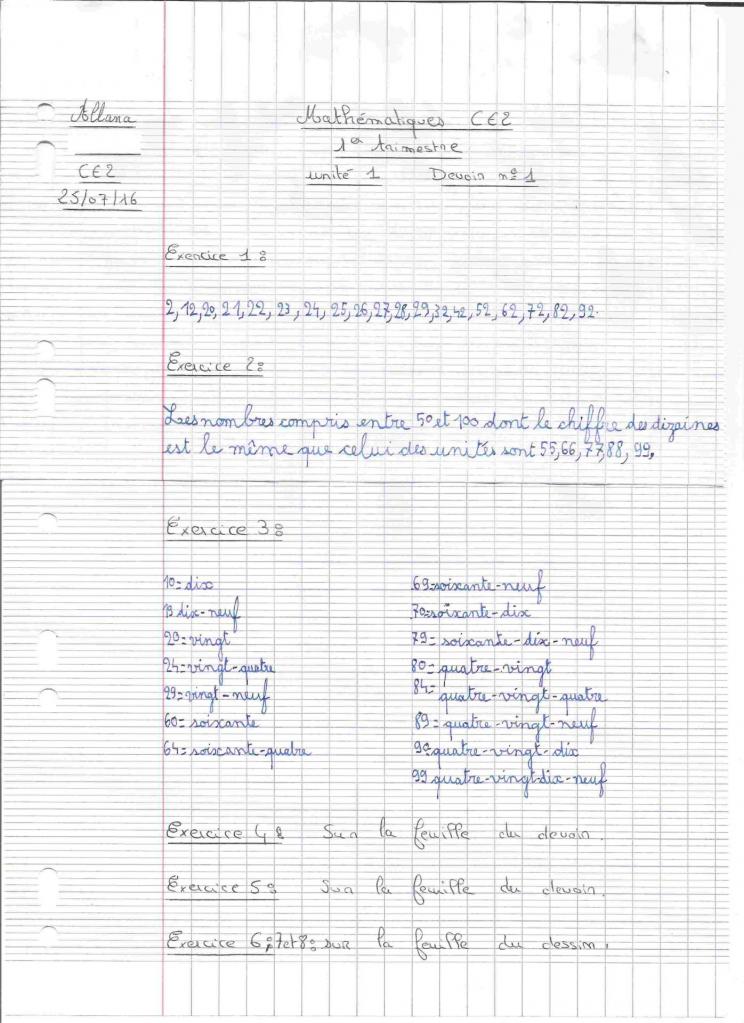 Allana
Mathématiques CE2
1er trimestre
CE2
unité 1 Devoir n° 1
25/07/16
Exercice 1 :
2, 12, 20, 21, 22, 23, 24, 25, 26, 27, 28, 29, 32, 42, 52, 62, 72, 82, 92.
Exercice 2 :
Les nombres compris entre 50 et 100 dont le chiffre des dizaines
est le même que celui des unités sont 55, 66, 77, 88, 99.
Exercice 3 :
10 = dix
19 dix-neuf
20 = vingt
24 = vingt-quatre
29 = vingt-neuf
60 = soixante
64 = soixante-quatre
69 = soixante-neuf
70 = soixante-dix
79 = soixante-dix-neuf
80 = quatre-vingt
84 = quatre-vingt-quatre
89 = quatre-vingt-neuf
90 = quatre-vingt-dix
99 quatre-vingt-dix-neuf
Exercice 4 : Sur la feuille du devoir.
Exercice 5 : Sur la feuille du devoir.
Exercice 6, 7 et 8 : sur la feuille du dessim.